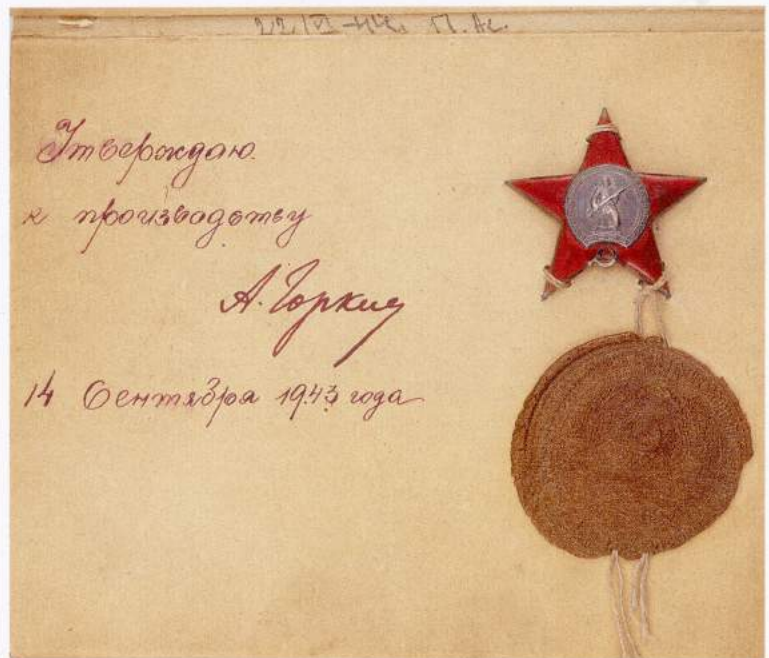 22/VI-44г. П. Ас.
Утверждаю
к производству
А. Горкин
14 Сентября 1943 года